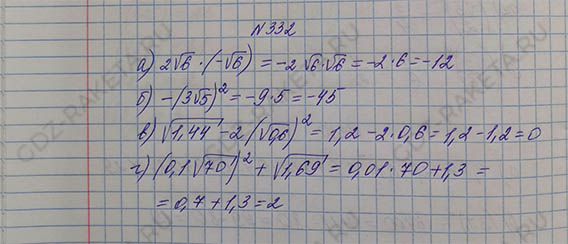 N332
а) 2√6 · (-√6) = -2√6·√6 = -2·6 = -12
б) -(3√5)² = -9·5 = -45
в) √1,44 - 2(√0,6)² = 1,2 - 2·0,6 = 1,2 - 1,2 = 0
г) (0,1√70)² + √1,69 = 0,01·70 + 1,3 =
= 0,7 + 1,3 = 2
GDZ-RAKETA.RU